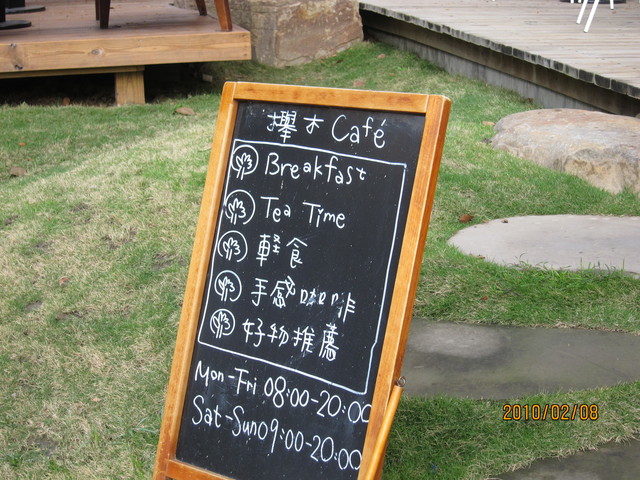 欅木 Café
Breakfast
Tea Time
軽食
手感咖啡
好物推薦
Mon-Fri 08:00-20:00
Sat-Sun 09:00-20:00
2010/02/08